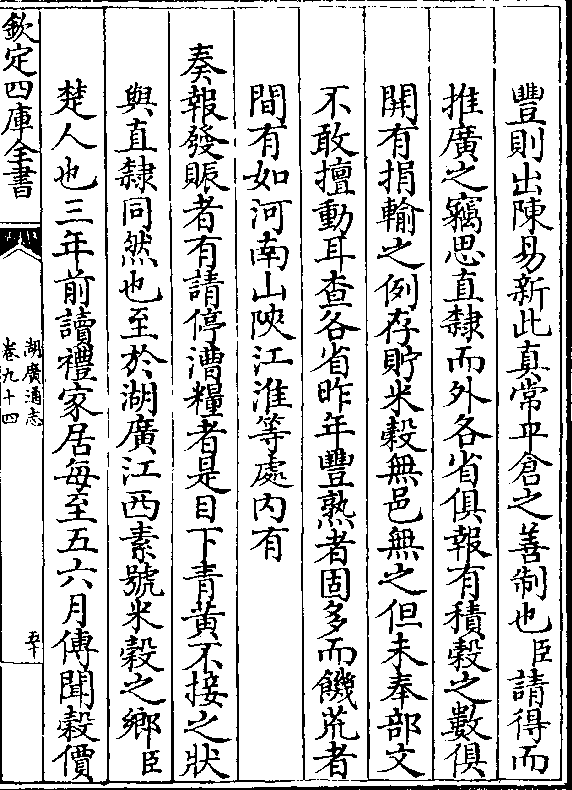 豐則出陳易新此真常平倉之善制也臣請得而
推廣之竊思直隸而外各省俱報有積穀之數俱
開有捐輸之例存貯米穀無邑無之但未奉部文
不敢擅動耳查各省昨年豐熟者固多而饑荒者
間有如河南山陝江淮等處内有
奏報發賑者有請停漕糧者是目下青黄不接之狀
與直隸同然也至於湖廣江西素號米穀之鄉臣
楚人也三年前讀禮家居每至五六月傳聞穀價
欽定四庫全書
湖廣通志
卷九十四
五十